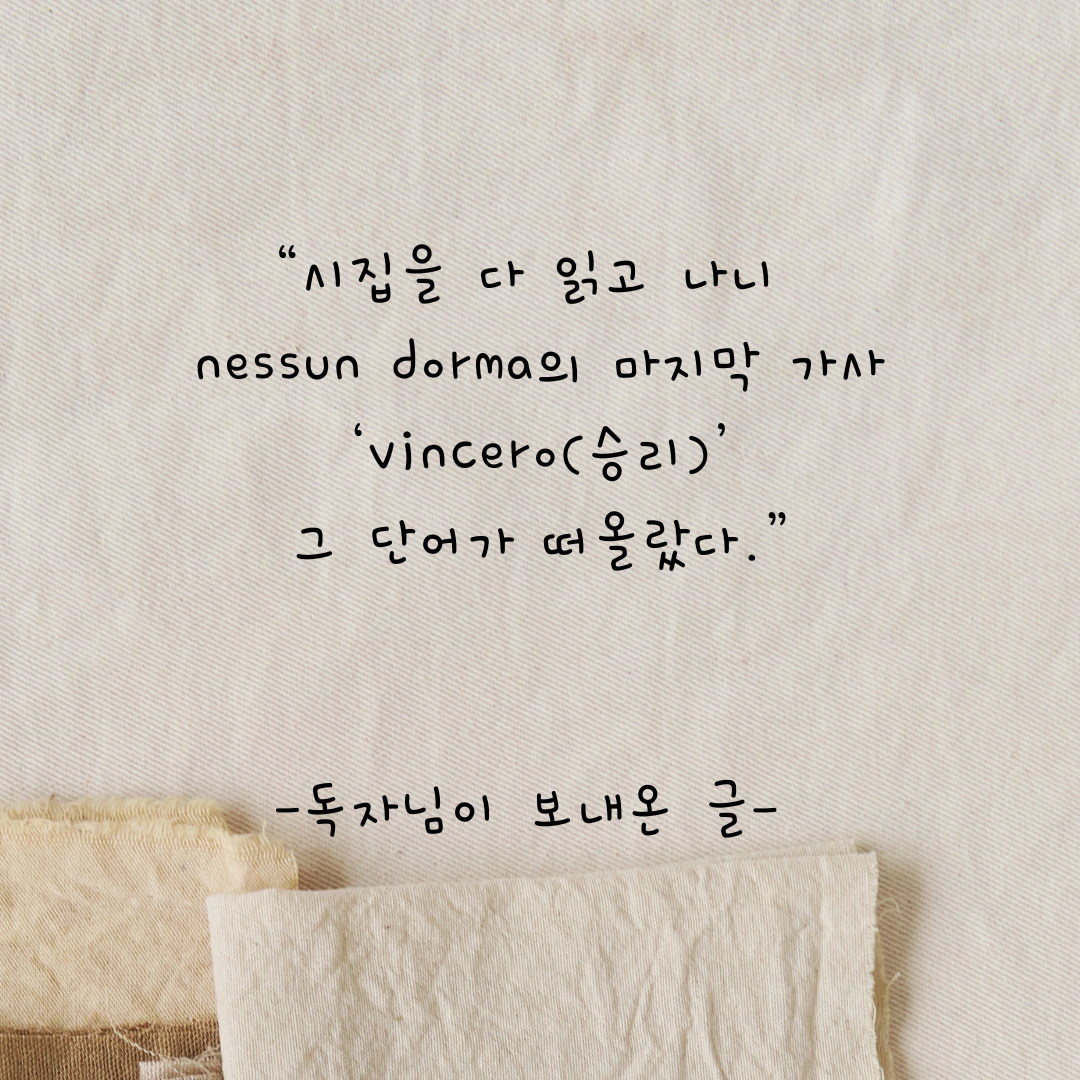 “시집을 다 읽고 나니
nessun dorma의 마지막 가사
‘vincero(승리)’
그 단어가 떠올랐다.”
-독자님이 보내온 글-